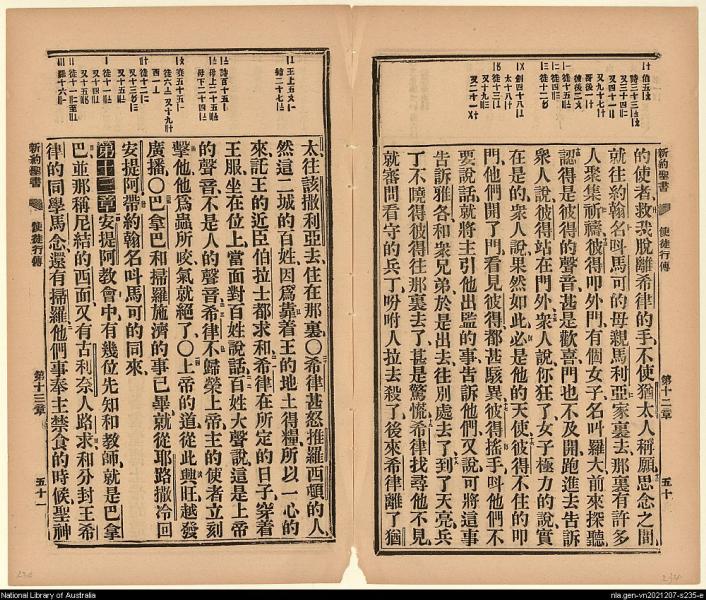 的使者、救我脫離希律的手、不使猶太人稱願、思念之間、
就往約翰名叫馬可的母親馬利亞家裏去、那裏有許多
人聚集祈禱、彼得叩外門、有個女子名叫羅大、前來探聽、
認得是彼得的聲音、甚是歡喜、門也不及開、跑進去告訴
衆人說、彼得站在門外、衆人說、你狂了、女子極力的說、實
在是的、衆人說、果然如此、必是他的天使、彼得不住的叩
門、他們開了門看見彼得、都甚駭異、彼得搖手、叫他們不
要說話、就將主引他出監的事告訴他們、又說、可將這事
告訴雅各和衆兄弟、於是出去、往別處去了、到了天亮、兵
丁不曉得彼得往那裏去了、甚是驚慌、希律找尋他不見、
就審問看守的兵丁、吩咐人拉去殺了、後來希律離了猶
新約聖書
使徒行傳
第十二章
五十
太、往該撒利亞去、住在那裏〇希律甚怒推羅西頓的人、
然這二城的百姓、因爲靠着王的地土得糧、所以一心的
來、託王的近臣伯拉士都求和、希律在所定的日子、穿着
王服、坐在位上、當面對百姓說話、百姓大聲說、這是上帝
的聲音、不是人的聲音、希律不歸榮上帝、主的使者立刻
擊他、他爲蟲所咬、氣就絕了〇上帝的道、從此興旺、越發
廣播〇巴拿巴和掃羅、施濟的事已畢、就從耶路撒冷回
安提阿、帶約翰名叫馬可的同來、
第十三章安提阿敎會中、有幾位先知和敎師、就是巴拿
巴、並那稱尼結的西面、又有古利奈人路求、和分封王希
律的同學馬念、還有掃羅、他們事奉主禁食的時候、聖神
新約聖書
使徒行傳
第十三章
五十一
National Library of Australia
nla.gen-vn2021207-s235-e